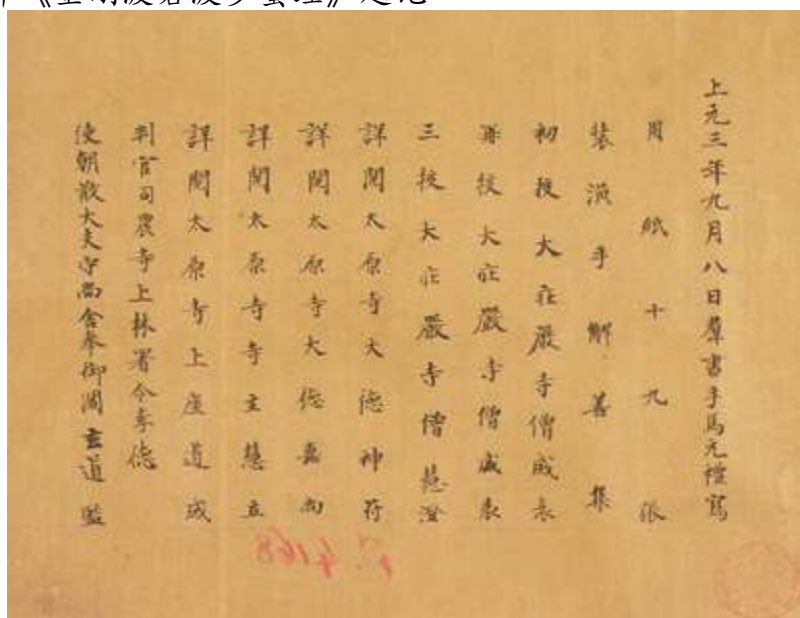 《金剛般若波羅蜜經》題記
上元三年九月八日羣書手馬元禮寫
用紙十九張
裝潢手解善集
初校大莊嚴寺僧威表
再校大莊嚴寺僧威表
三校大莊嚴寺僧慧澄
詳閱太原寺大德神符
詳閱太原寺大德嘉尚
詳閱太原寺寺主慧立
詳閱太原寺上座道成
判官司農寺上林署令李德
使朝散大夫守尚舍奉御閻玄道監
P. 4168